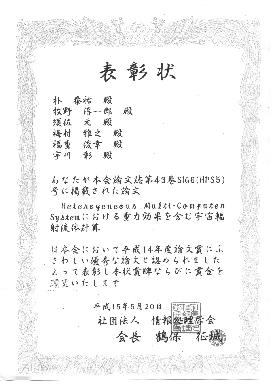 表彰状
朴 泰祐 殿
牧野 淳一郎 殿
須佐 元 殿
梅村 雅之 殿
福重 俊幸 殿
宇川 彰 殿
あなたが本会論文誌第43巻SIG6(HPS5)
号に掲載された論文
Heterogeneous Multi-Computer
Systemにおける重力効果を含む宇宙輻
射流体計算
は本会において平成14年度論文賞にふ
さわしい優秀な論文と認められました
よって表彰し本状賞牌ならびに賞金を
贈呈いたします
平成15年5月20日
社団法人 情報処理学会
会長 鶴保 征城